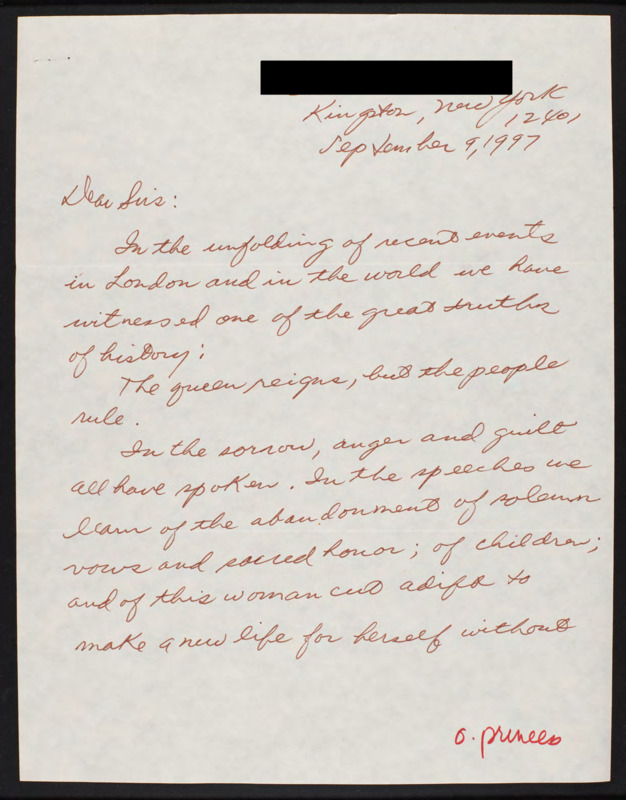 Kingston, New York
12401
September 9, 1997
Dear Sirs:
In the unfolding of recent events
in London and in the world we have
witnessed one of the great truths
of history;
The queen reigns, but the people
rule.
In the sorrow, anger and guilt
all have spoken. In the speeches we
learn of the abandonment of solemn
vows and sacred honor; of children;
and of this woman cut adift to
make a new life for herself without
O. Princess